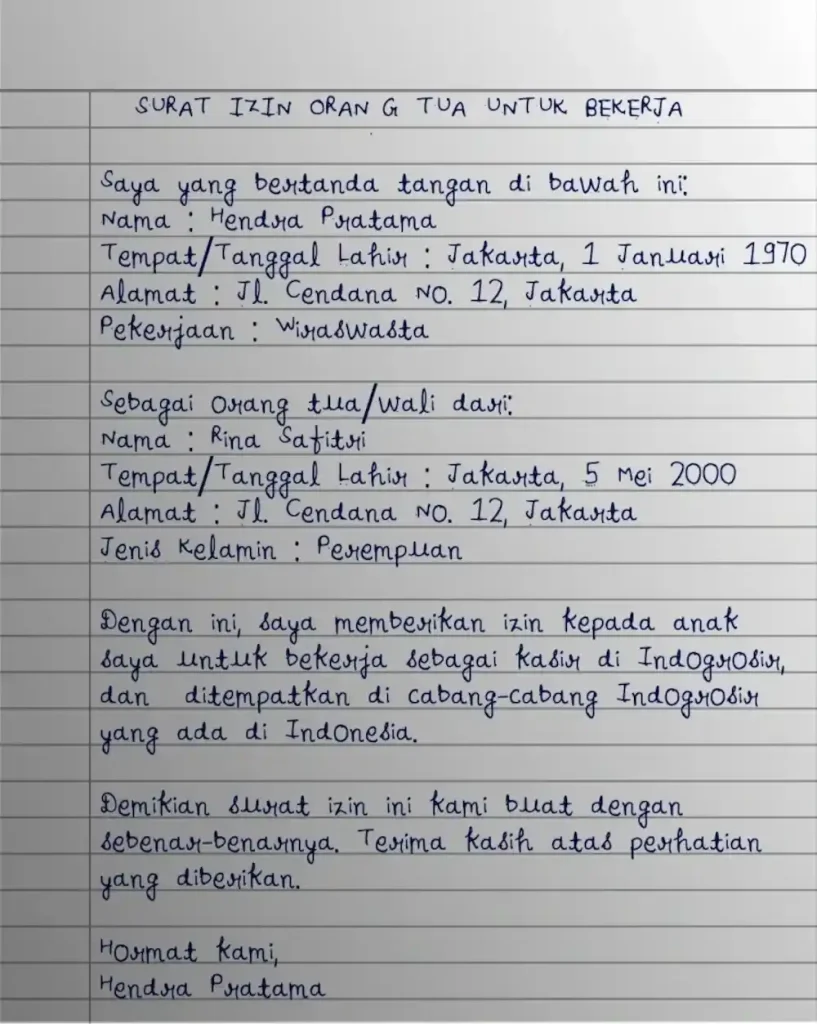 SURAT IZIN ORAN G TUA UNTUK BEKERJA
Saya yang bertanda tangan di bawah ini:
Nama : Hendra Pratama
Tempat/Tanggal Lahir : Jakarta, 1 Januari 1970
Alamat : Jl. Cendana No. 12, Jakarta
Pekerjaan : Wiraswasta
Sebagai orang tua/wali dari:
Nama : Rina Safitri
Tempat/Tanggal Lahir : Jakarta, 5 Mei 2000
Alamat : Jl. Cendana No. 12, Jakarta
Jenis Kelamin : Perempuan
Dengan ini, saya memberikan izin kepada anak
saya untuk bekerja sebagai kasir di Indogrosir,
dan ditempatkan di cabang-cabang Indogrosir
yang ada di Indonesia.
Demikian surat izin ini kami buat dengan
sebenar-benarnya. Terima kasih atas perhatian
yang diberikan.
Hormat kami,
Hendra Pratama